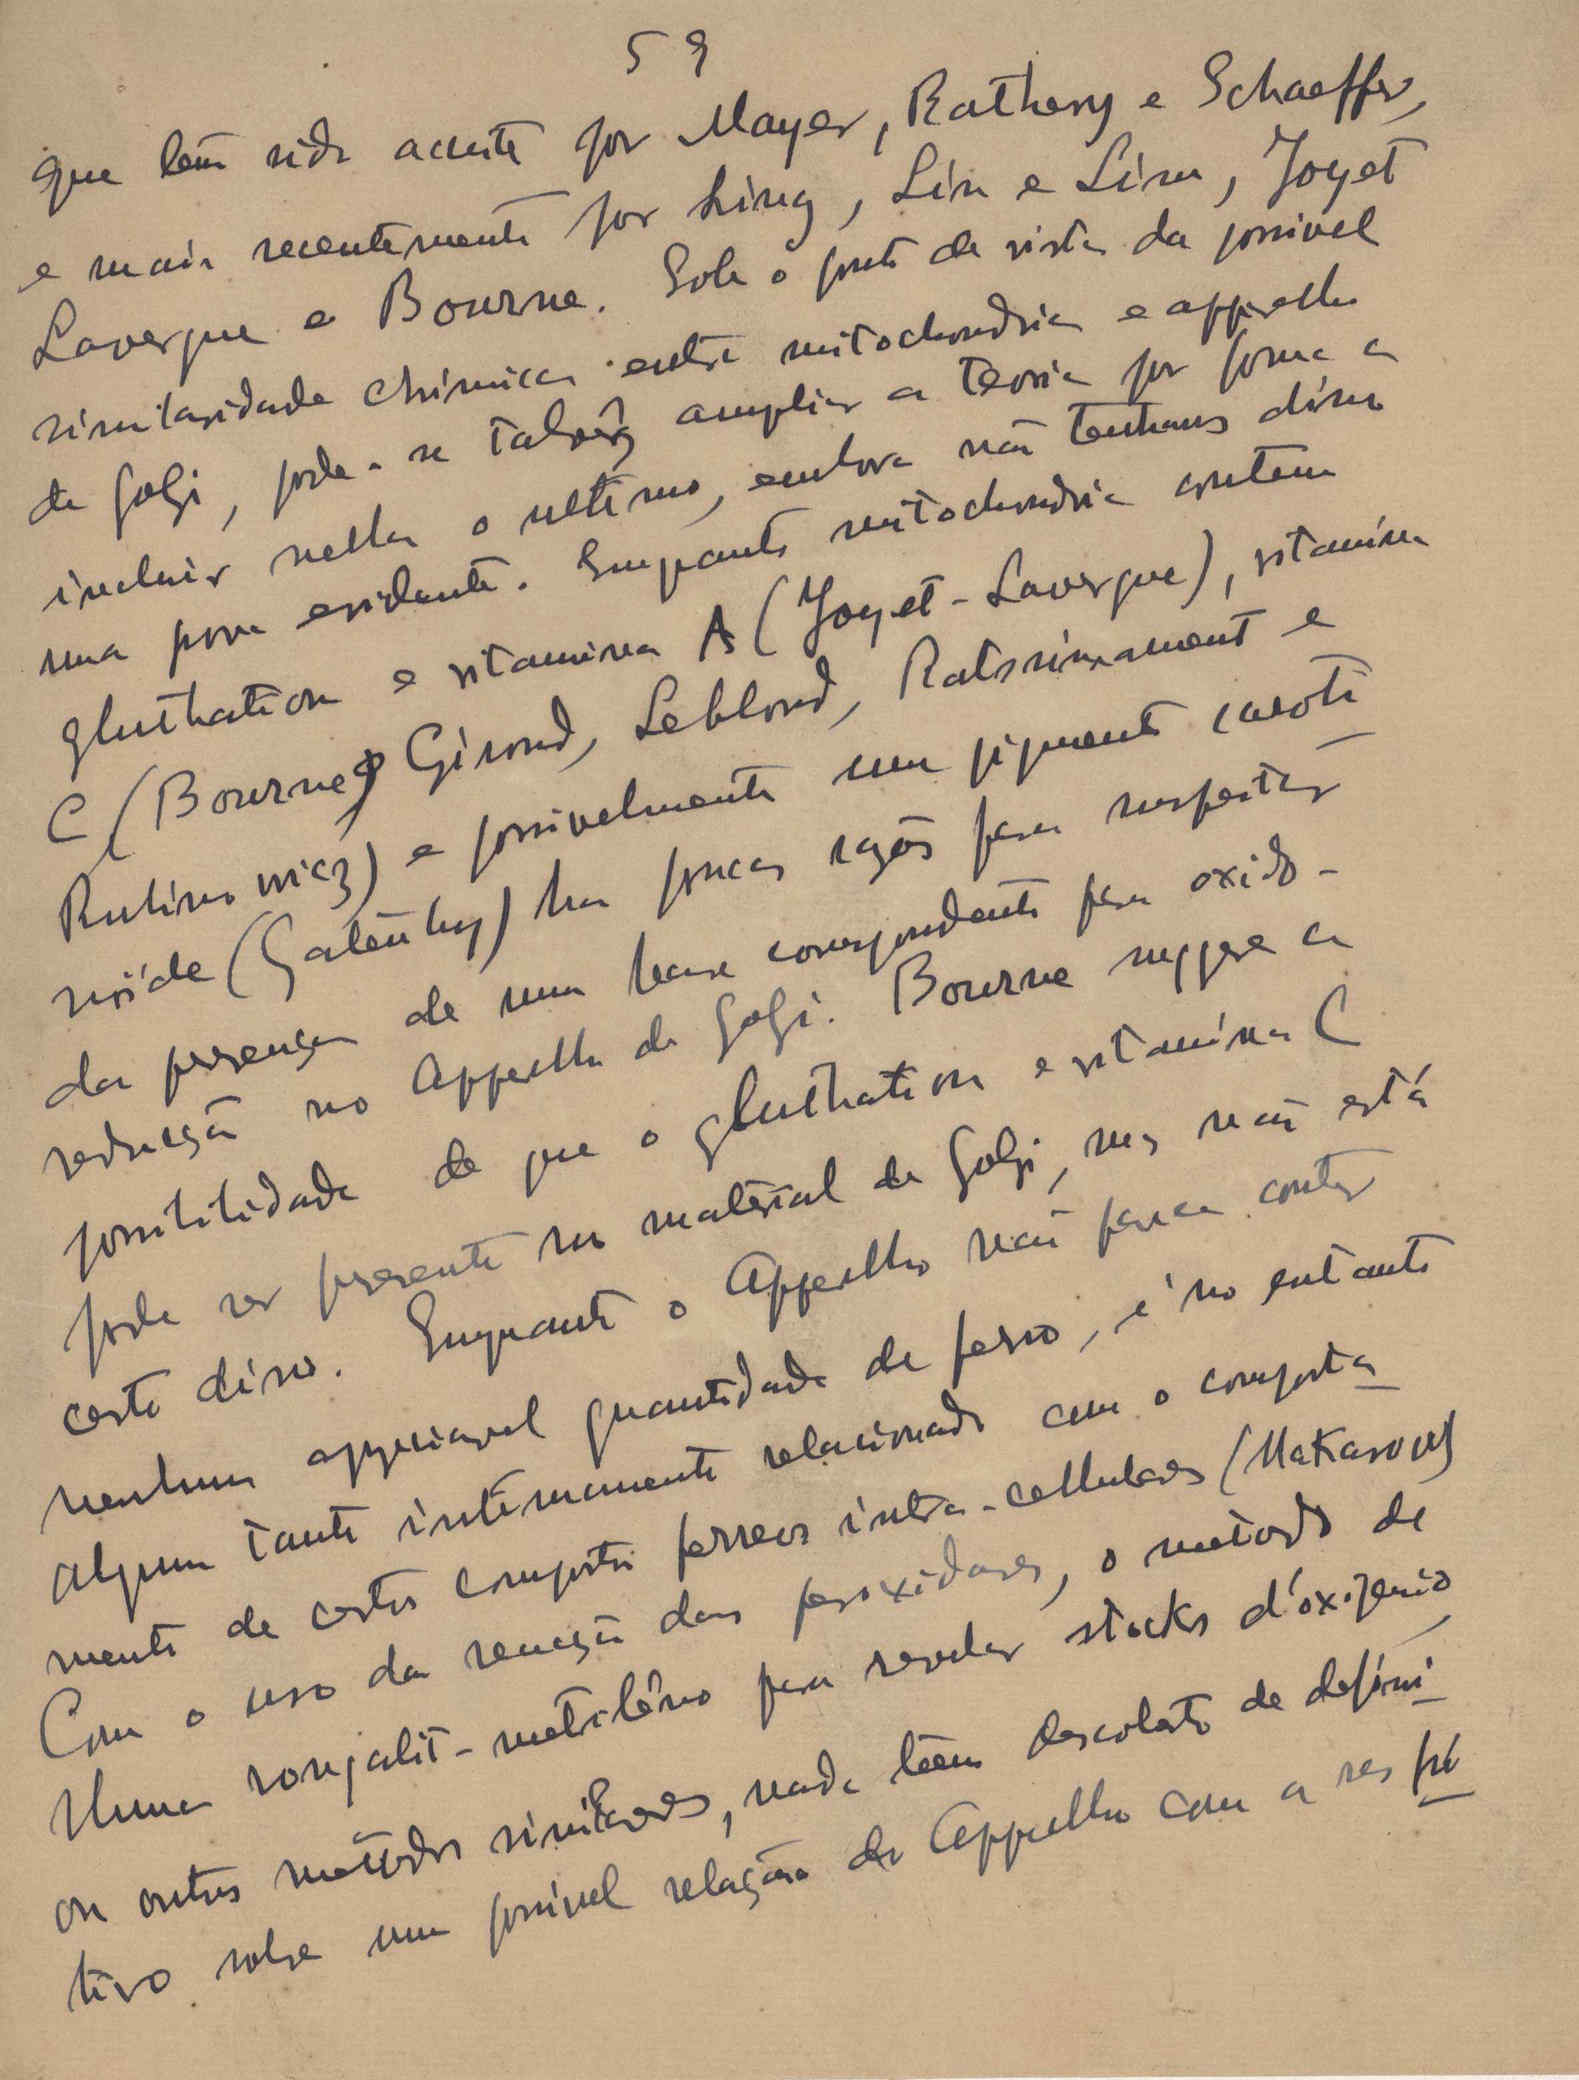 59
que têm sido aceite por Mayer, Rathery e Schaeffer,
e mais recentemente por King, Lin e Lim, Joyet
Lavergne e Bourne. Sob o ponto de vista da possivel
similaridade chimica entre mitochondria e apparelho
de Golgi, pode-se talvêz ampliar a teoria por forma a
incluir nella o ultimo, embora não tenhamos disso
uma prova evidente. Emquanto mitochondria contem
gluthation e vitamina A (Joyet-Lavergne), vitamina
C (Bourne, Giroud, Leblond, Ratsimamont e
Rubinowicz) e possivelmente um pigmento caroti
nóide (Gatenby) ha poucas razões para suspeitar
da presença de uma base correspondente para oxido-
reducção no Apparelho de Golgi. Bourne suggere a
possibilidade de que o gluthation e vitamina C
pode ser presente no material de Golgi, mas não está
certo disso. Emquanto o Apparelho não parece conter
nenhuma appreciavel quantidade de ferro, é no entanto
algum tanto intimamente relacionado com o comporta
mento de certos compostos ferreos intra-cellulares (Makarov)
Com o uso da reacção das peroxidases, o metodo de
Unna rongalit-metilêno para revelar stocks d'oxigenio
ou outros metodos similares, nada têem descoberto de defini
tivo sobre uma possivel relação do Apparelho com a respi